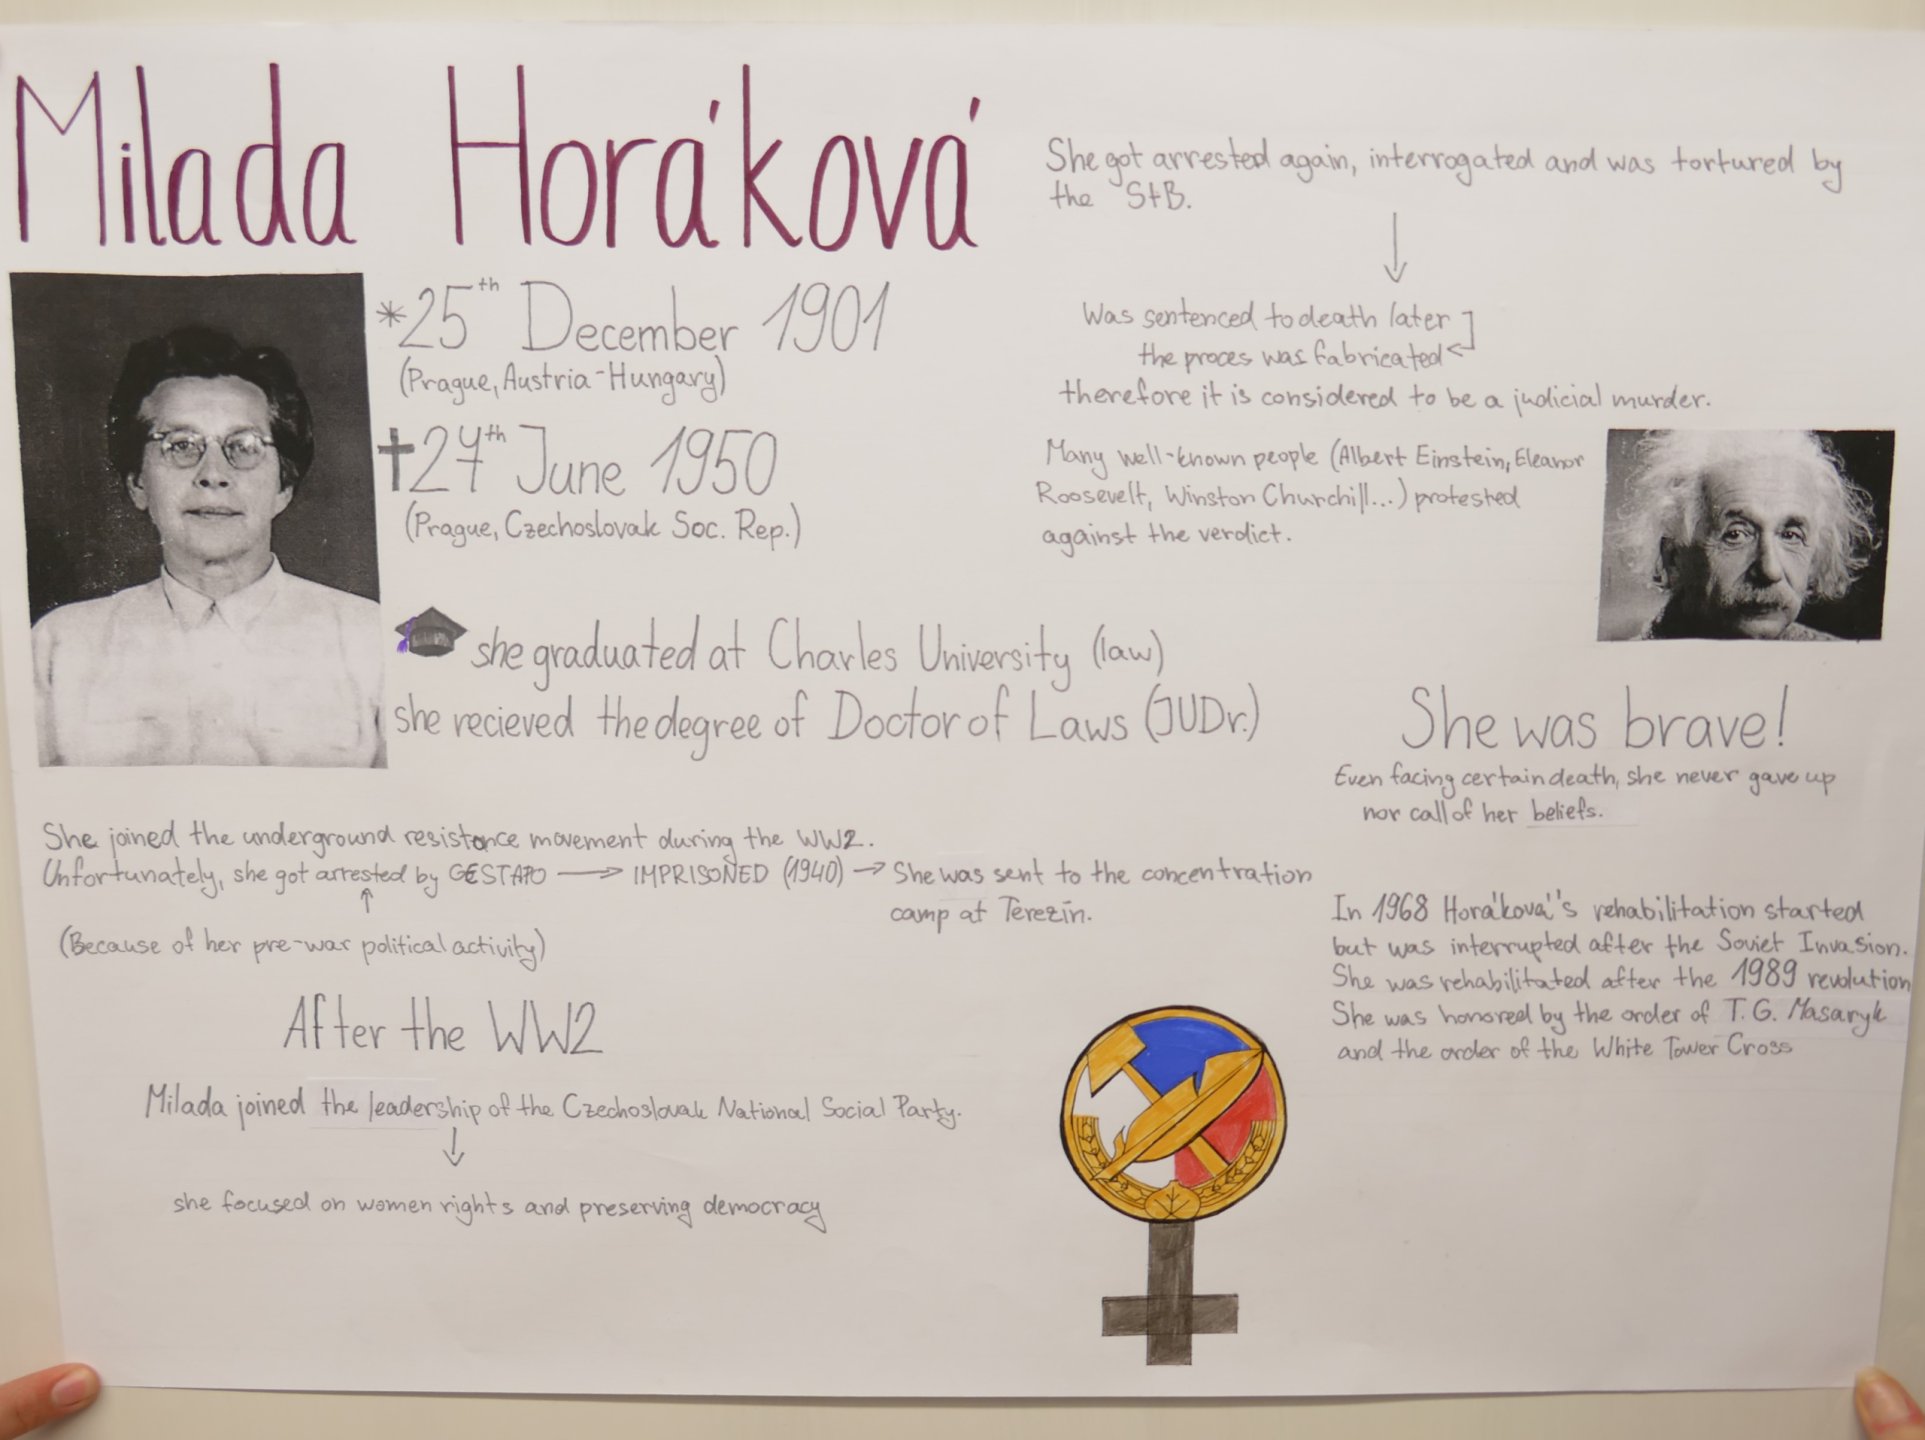 Milada Horáková
*25th December 1901
(Prague, Austria-Hungary)
†27th June 1950
(Prague, Czechoslovak Soc. Rep.)
she graduated at Charles University (law)
she recieved the degree of Doctor of Laws (JUDr.)
She joined the underground resistance movement during the WW2.
Unfortunately, she got arrested by GESTAPO → IMPRISONED (1940) → She was sent to the concentration
camp at Terezín.
↑
(Because of her pre-war political activity)
After the WW2
Milada joined the leadership of the Czechoslovak National Social Party.
↓
she focused on women rights and preserving democracy
She got arrested again, interrogated and was tortured by
the StB.
↓
Was sentenced to death later
the proces was fabricated
therefore it is considered to be a judicial murder.
Many well-known people (Albert Einstein, Eleanor
Roosevelt, Winston Churchill...) protested
against the verdict.
She was brave!
Even facing certain death, she never gave up
nor call of her beliefs.
In 1968 Horáková's rehabilitation started
but was interrupted after the Soviet Invasion.
She was rehabilitated after the 1989 revolution
She was honored by the order of T. G. Masaryk
and the order of the White Tower Cross